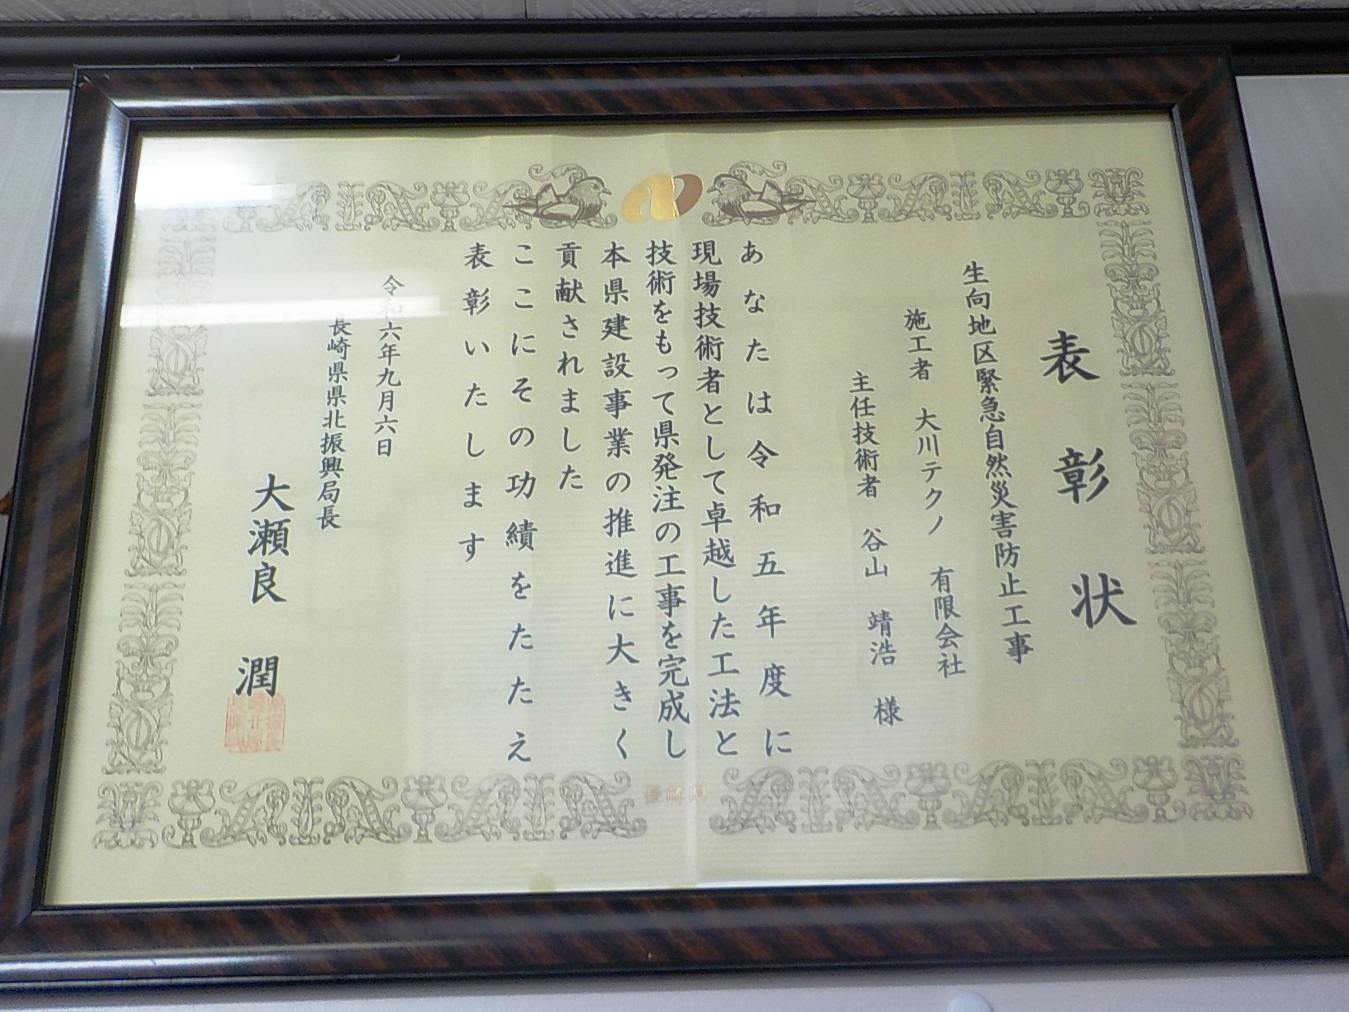 表彰状
生向地区緊急自然災害防止工事
施工者 大川テクノ 有限会社
主任技術者 谷山 靖浩 様
あなたは令和五年度に
現場技術者として卓越した工法と
技術をもって県発注の工事を完成し
本県建設事業の推進に大きく
貢献されました
ここにその功績をたたえ
表彰いたします
令和六年九月六日
長崎県県北振興局長
大瀬良 潤
長崎県